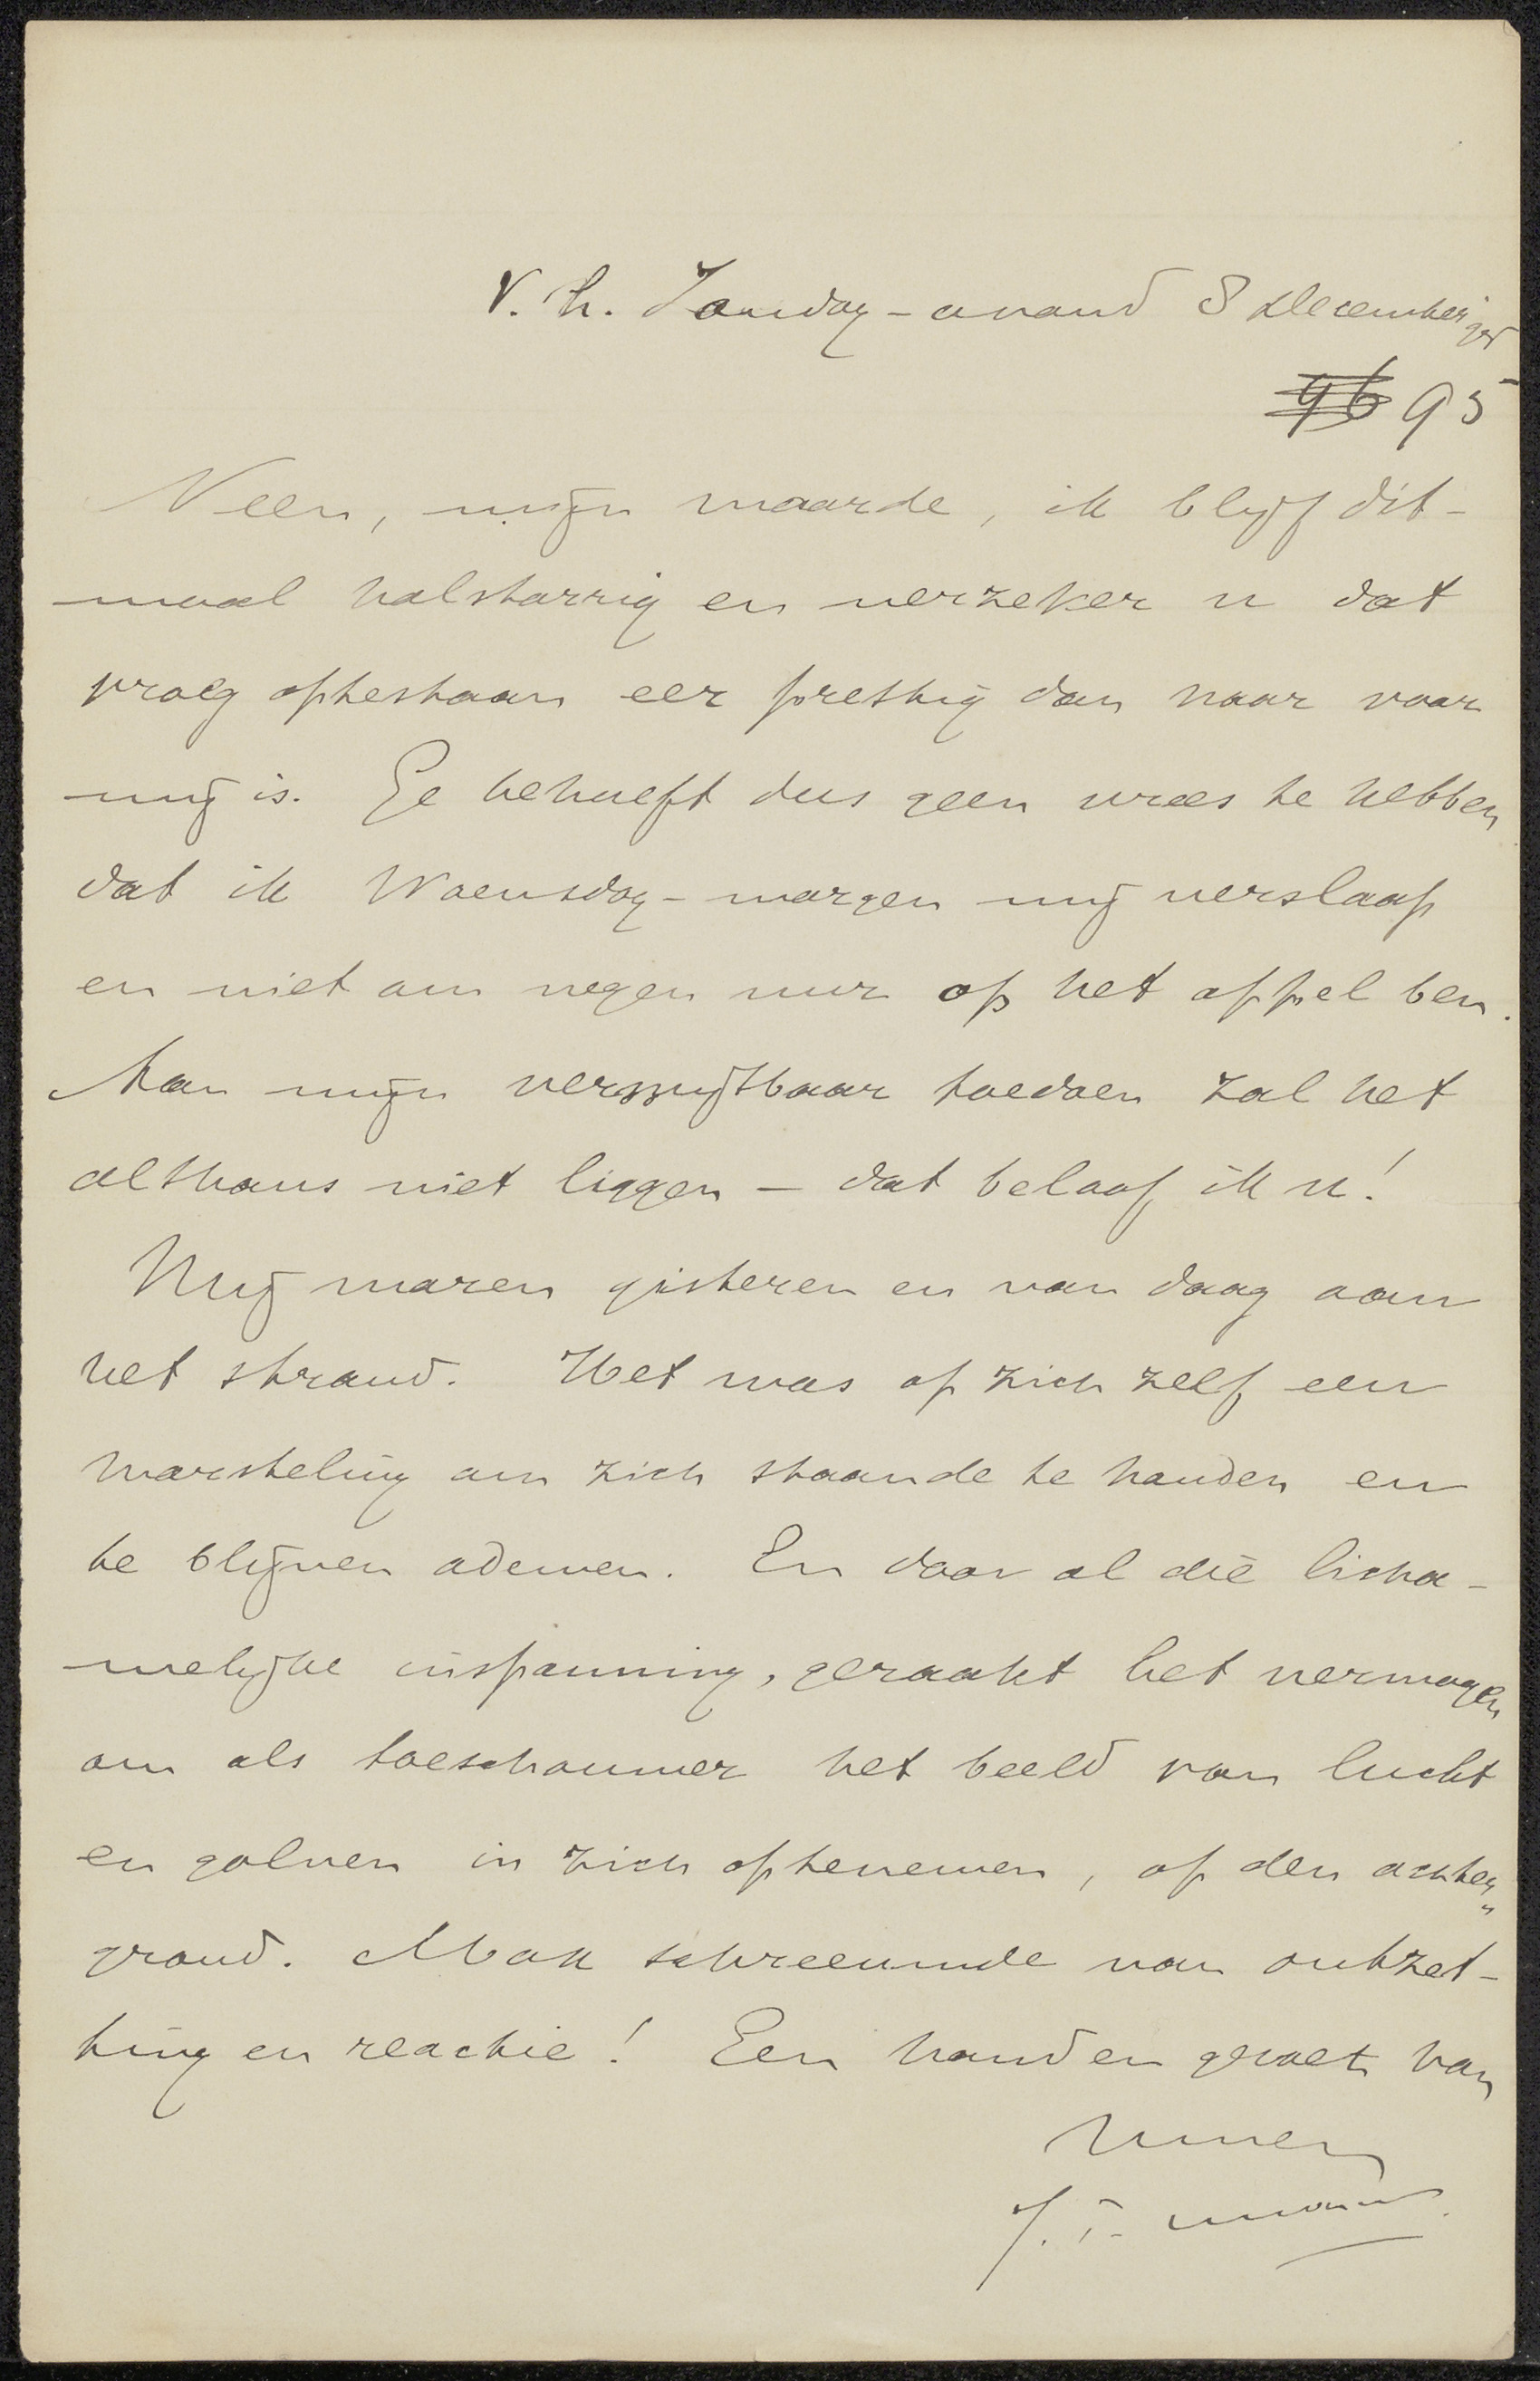 V. h. Zondag-avond 8 December
96 95
Neen, mijn waarde, ik blijf dit-
maal halstarrig en verzeker u dat
vroeg optestaan eer prettig dan naar voor
mij is. Ge behoeft dus geen vrees te hebben
dat ik Woensdag-morgen mij verslaap
en niet om negen uur op het appel ben.
Aan mijn verwijtbaar toedoen zal het
althans niet liggen – dat beloof ik u!
Wij waren gisteren en van daag aan
het strand. Het was op zich zelf een
worsteling om zich staande te houden en
te blijven ademen. En door al die licha-
melijke inspanning, geraakt het vermogen
om als toeschouwer het beeld van lucht
en golven in zich optenemen, op den achter„
grond. Max schreeuwde van ontzet-
ting en reactie! Een handen groet van
Uwen